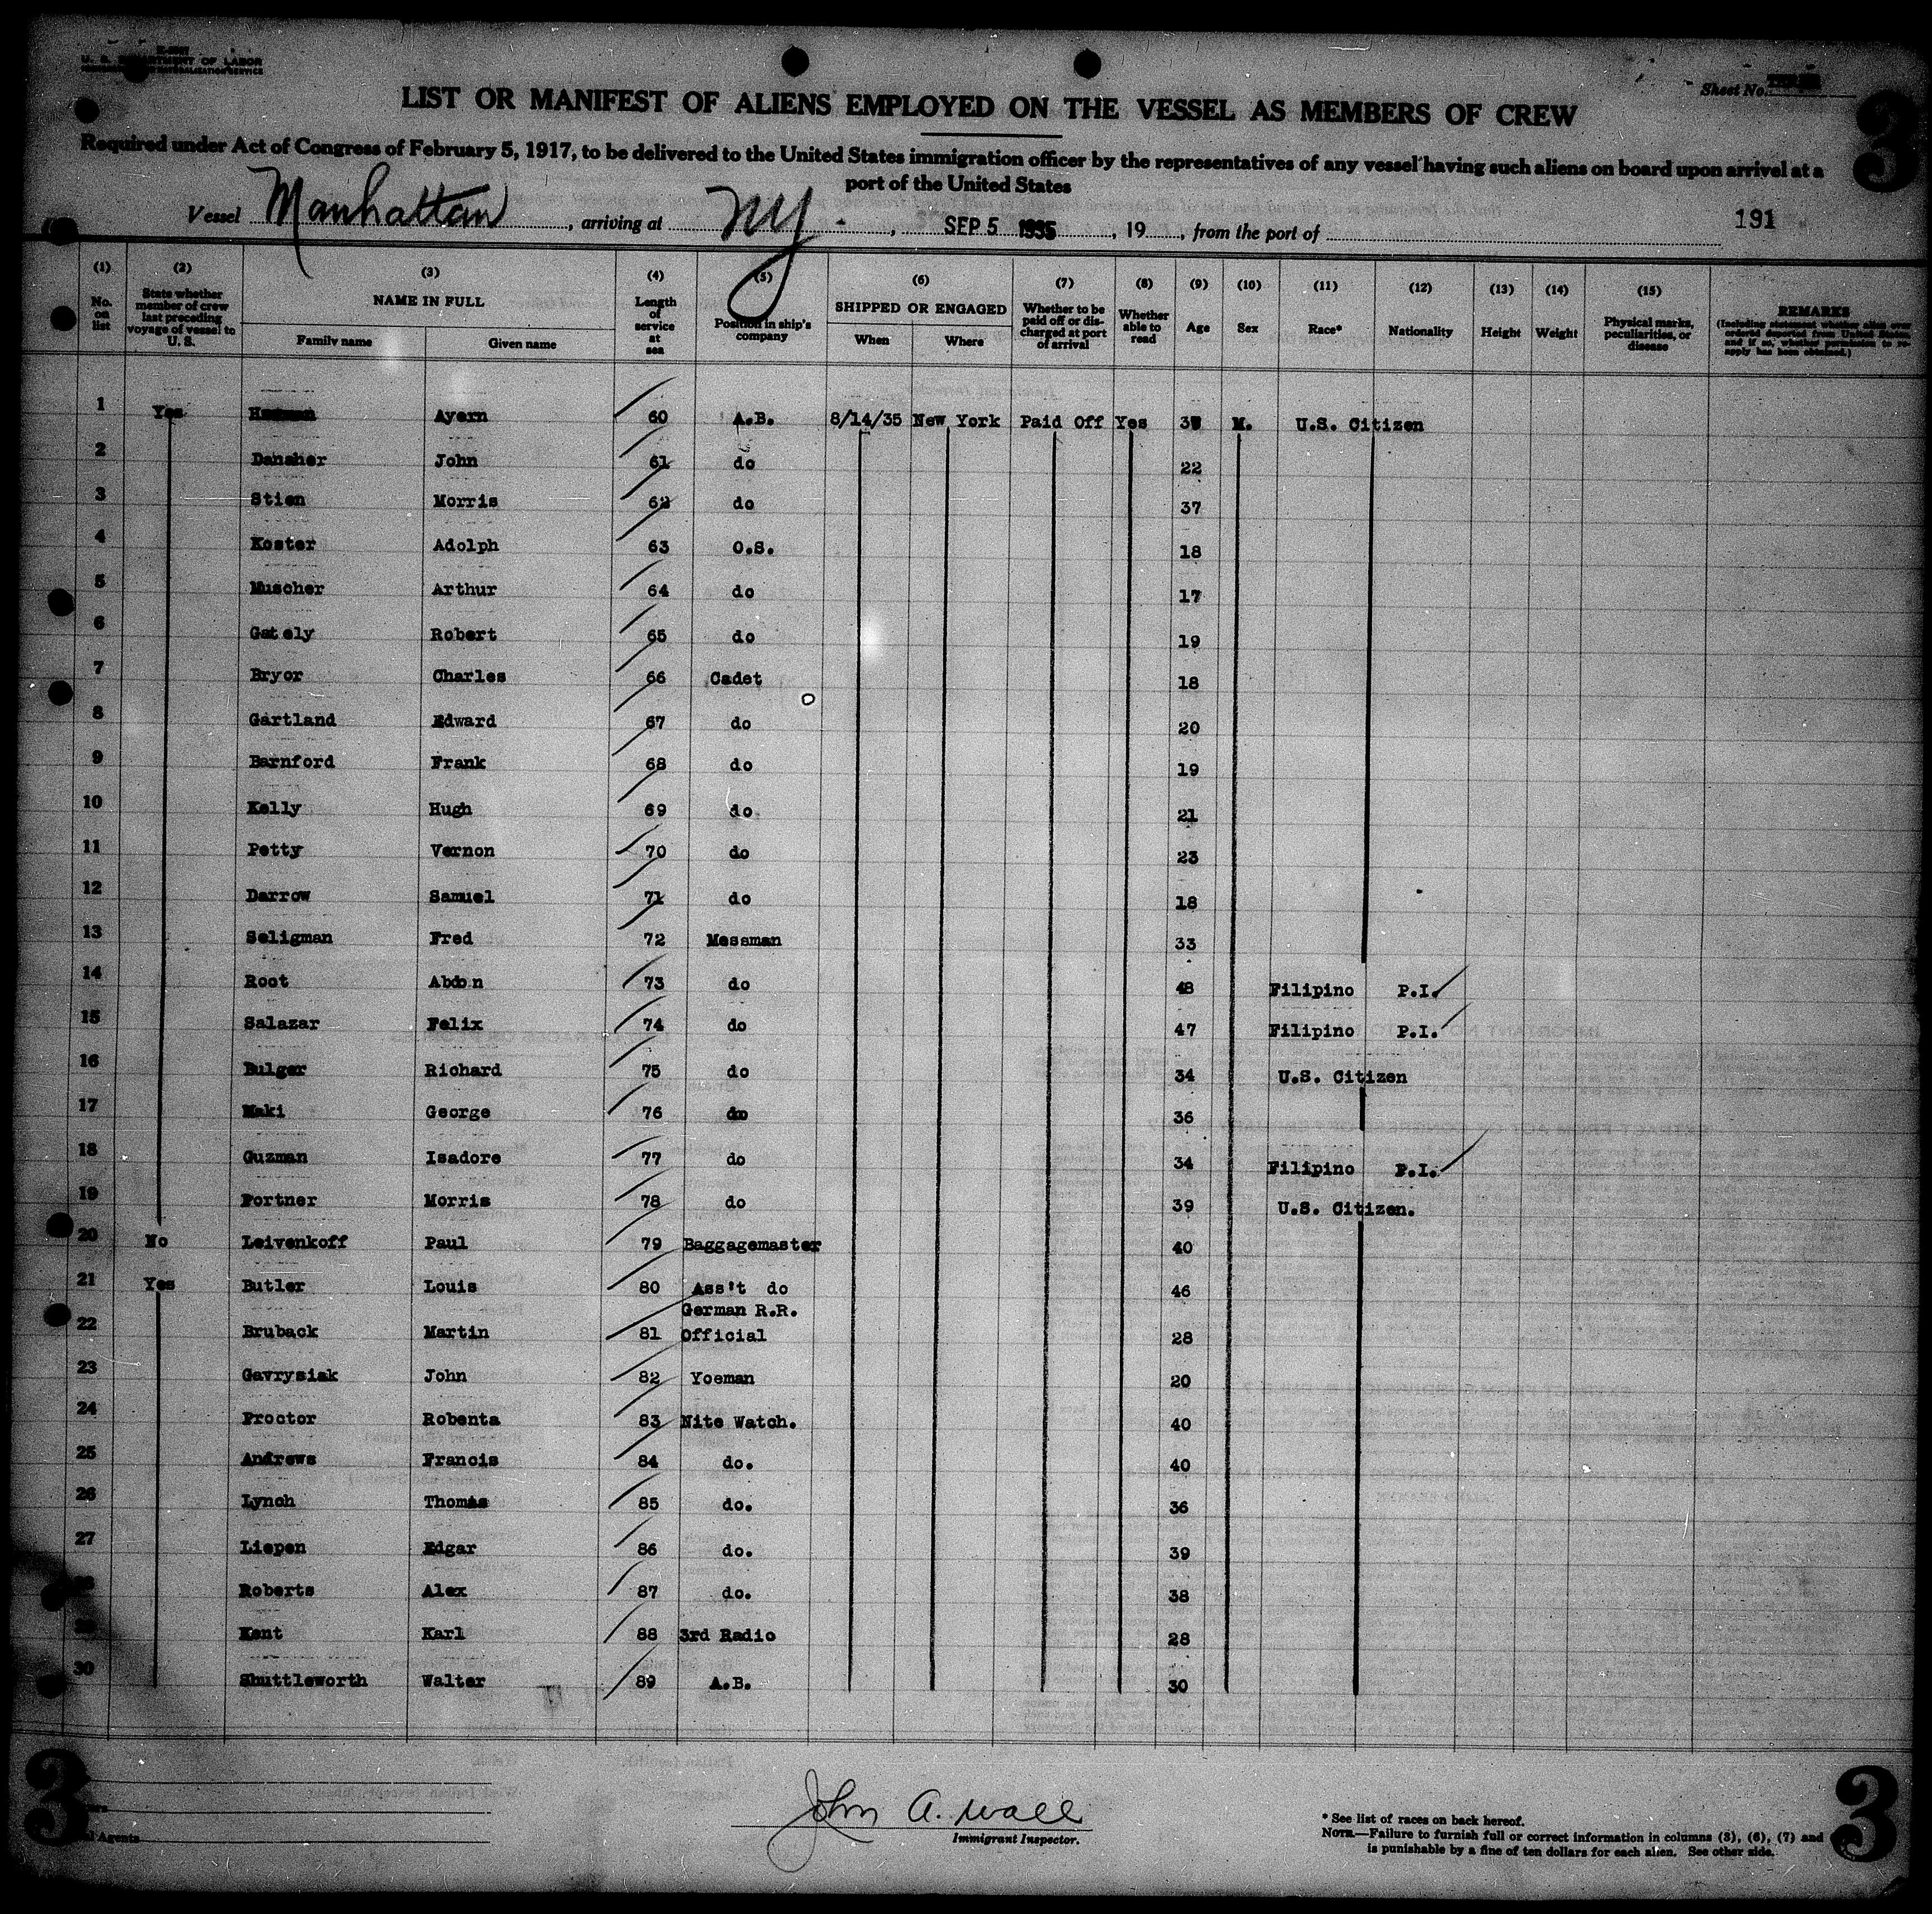 U. S. DEPARTMENT OF LABOR
Sheet No.
3
LIST OR MANIFEST OF ALIENS EMPLOYED ON THE VESSEL AS MEMBERS OF CREW
Required under Act of Congress of February 5, 1917, to be delivered to the United States immigration officer by the representatives of any vessel having such aliens on board upon arrival at a
port of the United States
Vessel Manhattan, arriving at NY., SEP 5 1935, 19, from the port of 191
(1) No. on list (2) State whether member of crew last preceding voyage of vessel to U. S. (3) NAME IN FULL Family name Given name (4) Length of service at sea (5) Position in ship's company (6) SHIPPED OR ENGAGED When Where (7) Whether to be paid off or discharged at port of arrival (8) Whether able to read (9) Age (10) Sex (11) Race* (12) Nationality (13) Height (14) Weight (15) Physical marks, peculiarities, or disease REMARKS (Including statement whether alien ever ordered deported from United States and if so, whether permission to reapply has been obtained.)
1 Yes Ayern 60 A.B. 8/14/35 New York Paid Off Yes M. U.S. Citizen
2 Danaher John 61 do 22
3 Stien Morris 62 do 37
4 Koster Adolph 63 O.S. 18
5 Muscher Arthur 64 do 17
6 Gately Robert 65 do 19
7 Bryor Charles 66 Cadet 18
8 Gartland Edward 67 do 20
9 Barnford Frank 68 do 19
10 Kelly Hugh 69 do 21
11 Petty Vernon 70 do 23
12 Darrow Samuel 71 do 18
13 Seligman Fred 72 Messman 33
14 Root Abdon 73 do 48 Filipino P.I.
15 Salazar Felix 74 do 47 Filipino P.I.
16 Bulger Richard 75 do 34 U.S. Citizen
17 Maki George 76 do 36
18 Guzman Isadore 77 do 34 Filipino P.I.
19 Portner Morris 78 do 39 U.S. Citizen.
20 No Leivenkoff Paul 79 Baggagemaster 40
21 Yes Butler Louis 80 Ass't do 46
German R.R.
22 Bruback Martin 81 Official 28
23 Gavrysiak John 82 Yoeman 20
24 Proctor Robenta 83 Nite Watch. 40
25 Andrews Francis 84 do. 40
26 Lynch Thomas 85 do. 36
27 Liepen Edgar 86 do. 39
28 Roberts Alex 87 do. 38
29 Kent Karl 88 3rd Radio 28
30 Shuttleworth Walter 89 A.B. 30
3
Agents
John A. Wall
Immigrant Inspector.
* See list of races on back hereof.
NOTE.—Failure to furnish full or correct information in columns (3), (6), (7) and
is punishable by a fine of ten dollars for each alien. See other side.
3